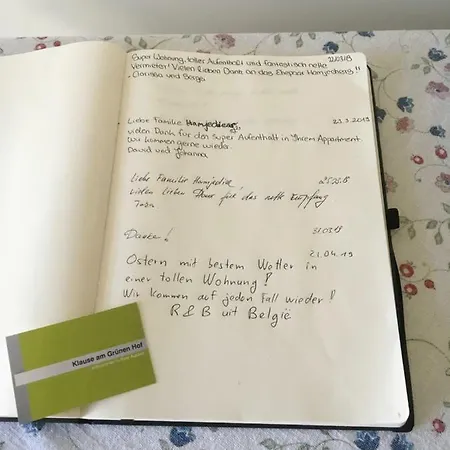 Super Wohnung, toller Aufenthalt und fantastisch nette
Vermieter! Vielen lieben Dank an das Ehepaar !!
- Clarissa und Sergej
23.3.2019
Liebe Familie
vielen Dank für den super Aufenthalt in Ihrem Appartment.
Wir kommen gerne wieder.
David und Johanna
Liebe Familie
vielen lieben Dank für das nette Empfang
Danke!
21.04.19
Ostern mit bestem Wetter in
einer tollen Wohnung!
Wir kommen auf jeden Fall wieder!
R & B uit België
Klause am Grünen Hof